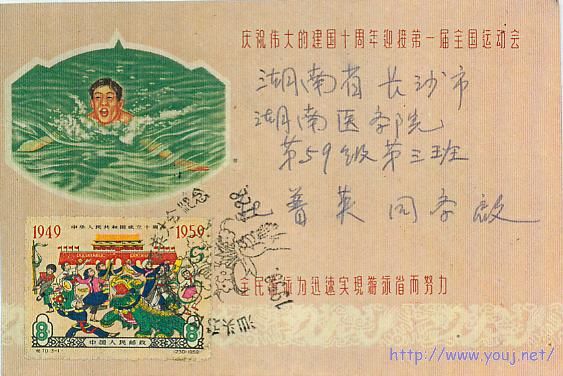 庆祝伟大的建国十周年迎接第一届全国运动会
湖南省长沙市
湖南医学院
第59级第三班
普英同学啟
1949
1959
中华人民共和国成立十周年
8
8
中国人民邮政
纪70.3-1
(230)1959
纪念
1959.
汕头
全民游泳为迅速实现游泳省而努力
http://www.youj.net/